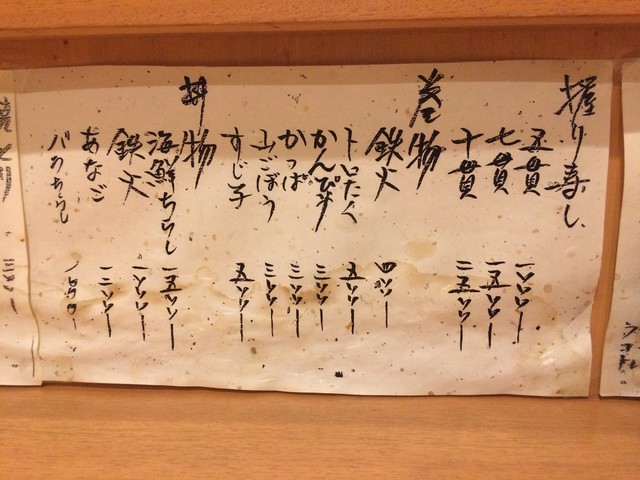 握り寿し
五貫 一〇〇〇ー
七貫 一五〇〇ー
十貫 二五〇〇ー
巻物
鉄火
トロたく 五〇〇ー
かんぴょう 三〇〇ー
かっぱ 三〇〇ー
山ごぼう 三〇〇ー
すじ子 五〇〇ー
丼物
海鮮ちらし 一五〇〇ー
鉄火 一〇〇〇ー
あなご 一二〇〇ー
バラちらし